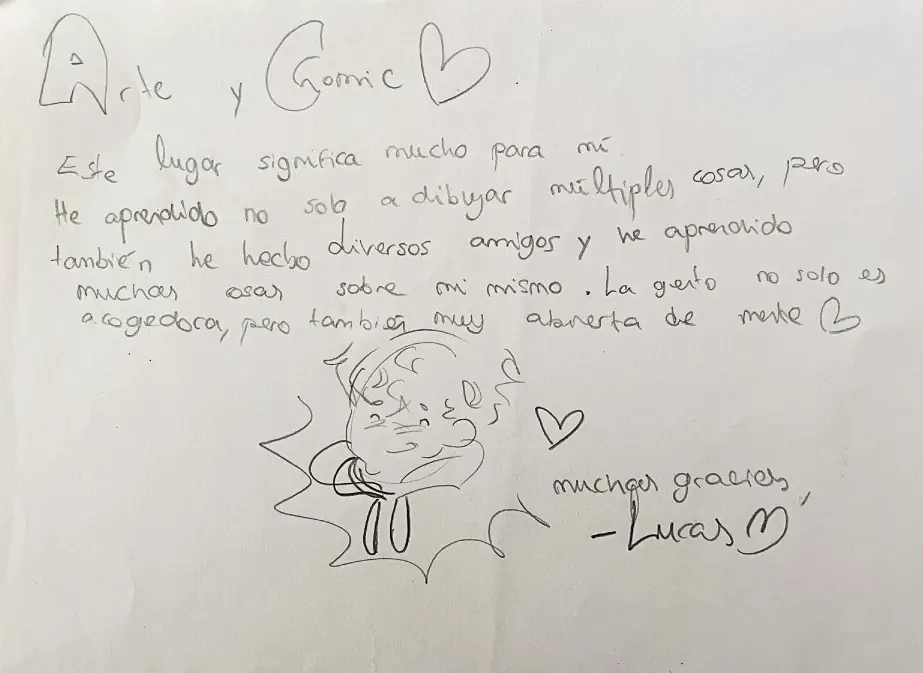 Arte y Chomic
Este lugar significa mucho para mí.
He aprendido no solo a dibujar múltiples cosas, pero
también he hecho diversos amigos y he aprendido
muchas cosas sobre mi mismo. La gente no solo es
acogedora, pero también muy abierta de mente
muchas gracias,
- Lucas